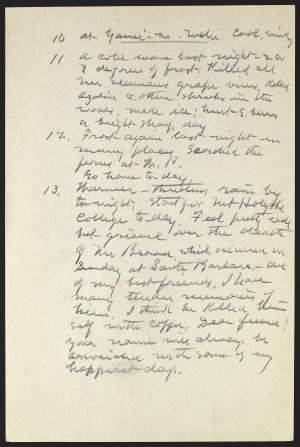 10 at Yama-no-uchi. Cool, windy
11 a cold wave last night - 2 or
3 degrees of frost. Killed all
Mrs Seamans grape vines, Killed
azalia & other shrubs in the
woods, made ice; hurt S. berry
a bright sharp day
12. Frost again last night - in
many places, Scorched the
ferns at W. P.
Go home to-day
13. Warmer - threatens rain by
to-night, start for Mt Holyoke
College to-day, Feel pretty
but grieved over the death
of Mr Brown, which occurred on
Sunday at Santa Barbara, - one
of my best friends, I have
many tender memories of
him, I think he killed him-
self with coffee, Dear friend!
your name will always be
associated with some of my
happiest days.